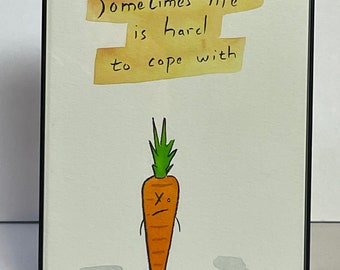 Sometimes life
is hard
to cope with